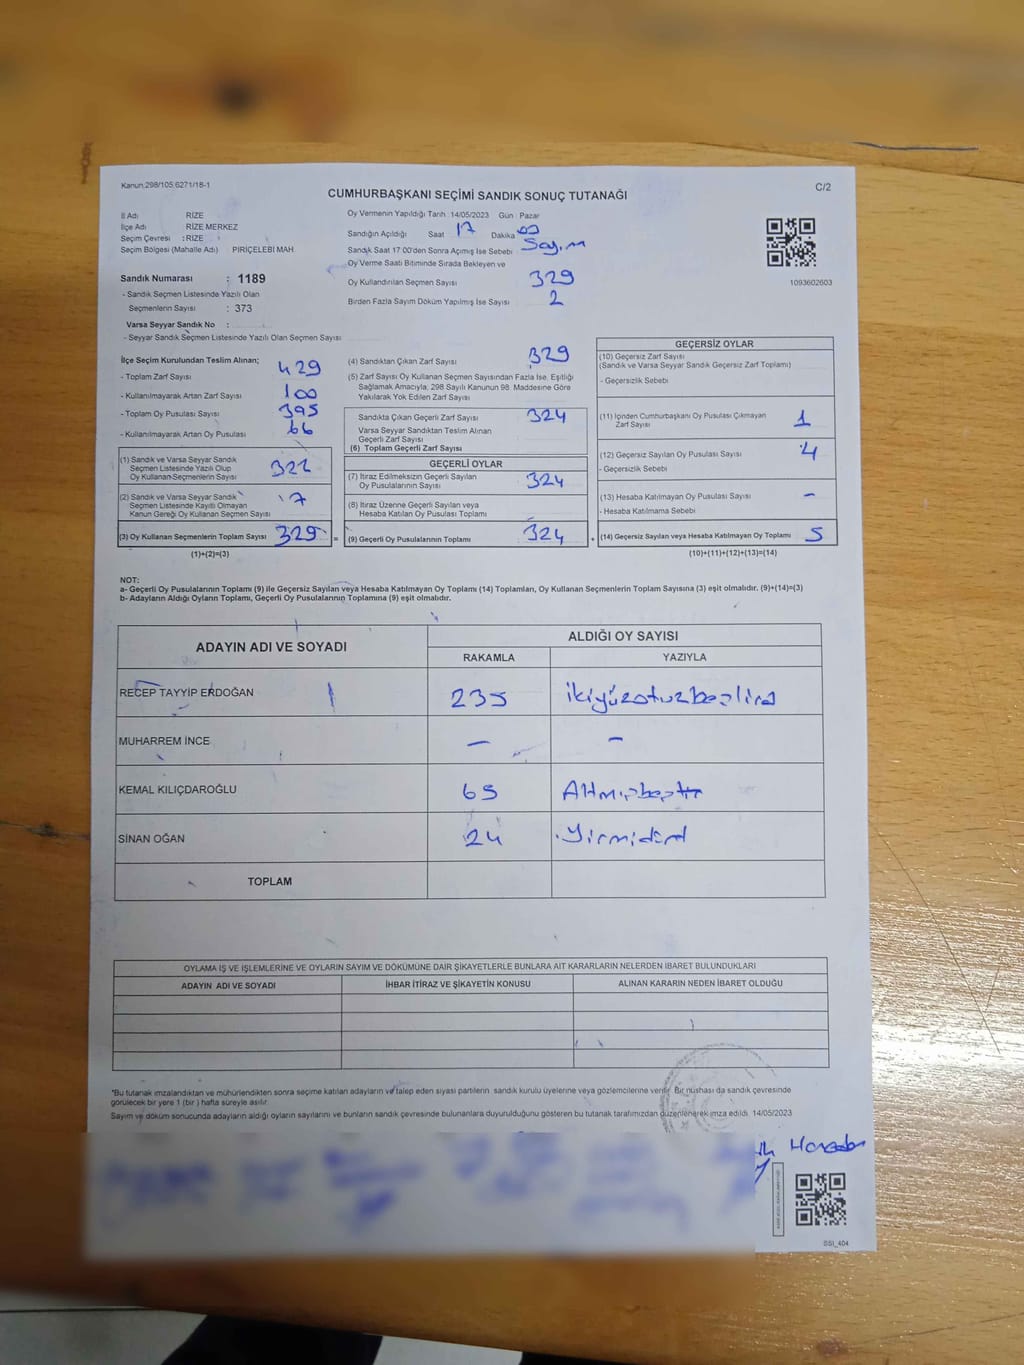 Kanun:298/105,6271/18-1
C/2
CUMHURBAŞKANI SEÇİMİ SANDIK SONUÇ TUTANAĞI
İl Adı RİZE
İlçe Adı RİZE MERKEZ
Seçim Çevresi : RİZE
Seçim Bölgesi (Mahalle Adı) PİRİÇELEBİ MAH
Oy Vermenin Yapıldığı Tarih : 14/05/2023 Gün : Pazar
Sandığın Açıldığı Saat 17 Dakika
Sandık Saat 17:00'den Sonra Açılmış İse Sebebi Sayım
Oy Verme Saati Bitiminde Sırada Bekleyen ve
Oy Kullandırılan Seçmen Sayısı 329
Birden Fazla Sayım Döküm Yapılmış İse Sayısı 2
1093602603
Sandık Numarası : 1189
- Sandık Seçmen Listesinde Yazılı Olan
Seçmenlerin Sayısı : 373
Varsa Seyyar Sandık No :
- Seyyar Sandık Seçmen Listesinde Yazılı Olan Seçmen Sayısı
İlçe Seçim Kurulundan Teslim Alınan;
- Toplam Zarf Sayısı 429
- Kullanılmayarak Artan Zarf Sayısı 100
- Toplam Oy Pusulası Sayısı 395
- Kullanılmayarak Artan Oy Pusulası 66
(1) Sandık ve Varsa Seyyar Sandık
Seçmen Listesinde Yazılı Olup
Oy Kullanan Seçmenlerin Sayısı 322
(2) Sandık ve Varsa Seyyar Sandık
Seçmen Listesinde Kayıtlı Olmayan
Kanun Gereği Oy Kullanan Seçmen Sayısı 7
(3) Oy Kullanan Seçmenlerin Toplam Sayısı 329 =
(1)+(2)=(3)
(4) Sandıktan Çıkan Zarf Sayısı 329
(5) Zarf Sayısı Oy Kullanan Seçmen Sayısından Fazla İse, Eşitliği
Sağlamak Amacıyla, 298 Sayılı Kanunun 98. Maddesine Göre
Yakılarak Yok Edilen Zarf Sayısı
Sandıkta Çıkan Geçerli Zarf Sayısı 324
Varsa Seyyar Sandıktan Teslim Alınan
Geçerli Zarf Sayısı
(6) Toplam Geçerli Zarf Sayısı
GEÇERLİ OYLAR
(7) İtiraz Edilmeksizin Geçerli Sayılan
Oy Pusulalarının Sayısı 324
(8) İtiraz Üzerine Geçerli Sayılan veya
Hesaba Katılan Oy Pusulası Toplamı
(9) Geçerli Oy Pusulalarının Toplamı 324 +
GEÇERSİZ OYLAR
(10) Geçersiz Zarf Sayısı
(Sandık ve Varsa Seyyar Sandık Geçersiz Zarf Toplamı)
- Geçersizlik Sebebi
(11) İçinden Cumhurbaşkanı Oy Pusulası Çıkmayan
Zarf Sayısı 1
(12) Geçersiz Sayılan Oy Pusulası Sayısı 4
- Geçersizlik Sebebi
(13) Hesaba Katılmayan Oy Pusulası Sayısı -
- Hesaba Katılmama Sebebi
(14) Geçersiz Sayılan veya Hesaba Katılmayan Oy Toplamı 5
(10)+(11)+(12)+(13)=(14)
NOT:
a- Geçerli Oy Pusulalarının Toplamı (9) ile Geçersiz Sayılan veya Hesaba Katılmayan Oy Toplamı (14) Toplamları, Oy Kullanan Seçmenlerin Toplam Sayısına (3) eşit olmalıdır. (9)+(14)=(3)
b- Adayların Aldığı Oyların Toplamı, Geçerli Oy Pusulalarının Toplamına (9) eşit olmalıdır.
ADAYIN ADI VE SOYADI ALDIĞI OY SAYISI
RAKAMLA YAZIYLA
RECEP TAYYİP ERDOĞAN 235 ikiyüzotuzbeş
MUHARREM İNCE - -
KEMAL KILIÇDAROĞLU 65 Altmışbeş
SİNAN OĞAN 24 Yirmidört
TOPLAM
OYLAMA İŞ VE İŞLEMLERİNE VE OYLARIN SAYIM VE DÖKÜMÜNE DAİR ŞİKAYETLERLE BUNLARA AİT KARARLARIN NELERDEN İBARET BULUNDUKLARI
ADAYIN ADI VE SOYADI İHBAR İTİRAZ VE ŞİKAYETİN KONUSU ALINAN KARARIN NEDEN İBARET OLDUĞU
*Bu tutanak imzalandıktan ve mühürlendikten sonra seçime katılan adayların ve talep eden siyasi partilerin sandık kurulu üyelerine veya gözlemcilerine verilir. Bir nüshası da sandık çevresinde
görülecek bir yere 1 (bir) hafta süreyle asılır.
Sayım ve döküm sonucunda adayların aldığı oyların sayılarını ve bunların sandık çevresinde bulunanlara duyurulduğunu gösteren bu tutanak tarafımızdan düzenlenerek imza edildi. 14/05/2023
SSİ_404